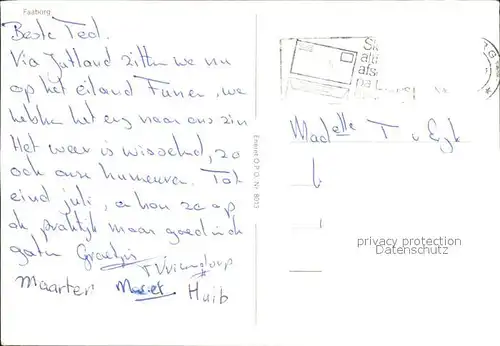 Faaborg
Beste Ted.
Via Jutland zitten we nu
op het eiland Funen, we
hebben het erg naar ons zin
Het weer is wisselend, zo
ook onze humeuren. Tot
eind juli, en hou ze op
de praktijk maar goed in de
gaten Groetjes
Maarten Huib
Eneret O.P.G. Nr. 8013
Madelle T v Eyk
privacy protection
Datenschutz